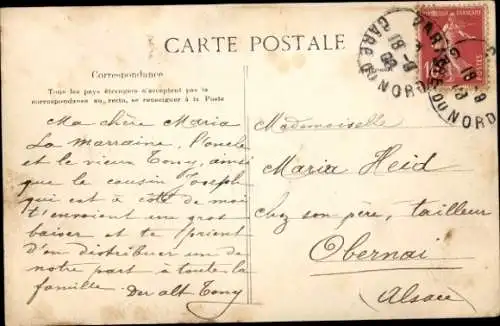 CARTE POSTALE
Correspondance
Tous les pays étrangers n'acceptent pas la
correspondance au recto, se renseigner à la Poste
Ma chère Maria
La marraine, l'oncle
et le vieux Tony, ainsi
que le cousin Joseph
qui est à côté de moi
t'envoient un gros
baiser et te prient
d'en distribuer un de
notre part à toute la
famille. Der alt Tony
Mademoiselle
Maria Heid
chez son père, tailleur
Obernai
(Alsace)
GARE DU NORD
PARIS
GARE DU NORD
10
POSTES